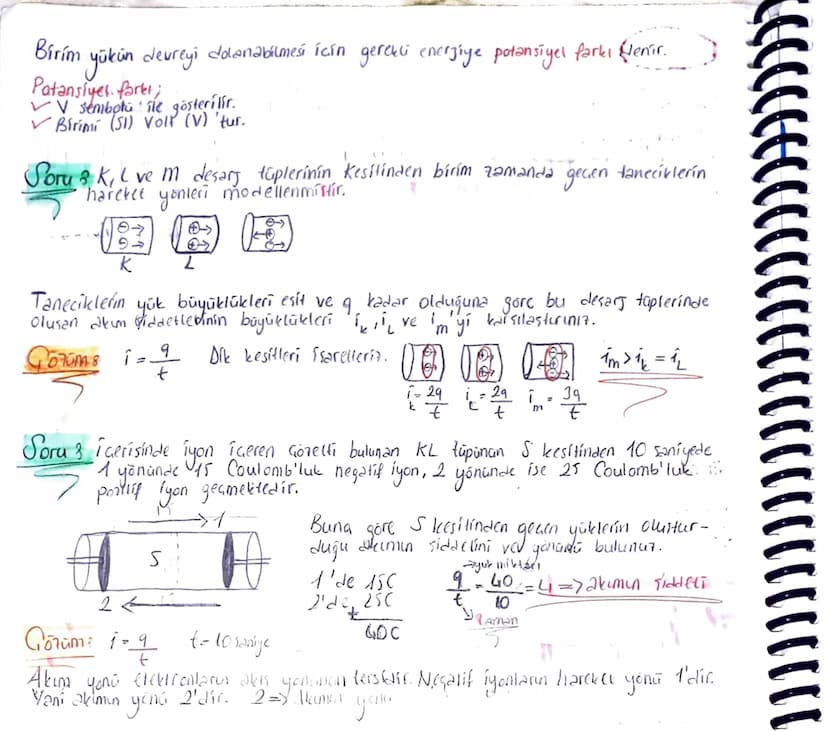 Birim yükün devreyi dolanabilmesi için gerekli enerjiye potansiyel farkı denir.
Potansiyel farkı;
✓ V sembolü ile gösterilir.
✓ Birimi (SI) Volt (V) 'tur.
Soru: K, L ve M deşarj tüplerinin kesitinden birim zamanda geçen taneciklerin
hareket yönleri modellenmiştir.
K L
Taneciklerin yük büyüklükleri eşit ve q kadar olduğuna göre bu deşarj tüplerinde
oluşan akım şiddetlerinin büyüklükleri i_k, i_L ve i_m'yi karşılaştırınız.
Çözüm: i = q/t Dik kesitleri işaretleriz. i_m > i_k = i_L
i_k = 2q/t i_L = 2q/t i_m = 3q/t
Soru: İçerisinde iyon içeren çözelti bulunan KL tüpünün S kesitinden 10 saniyede
1 yönünde 15 Coulomb'luk negatif iyon, 2 yönünde ise 25 Coulomb'luk
pozitif iyon geçmektedir.
1
S
2
Buna göre S kesitinden geçen yüklerin oluştur-
duğu akımın şiddetini ve yönünü bulunuz.
1'de 15C
2'de 25C
+
40C
yük miktarı
q/t = 40/10 = 4 => akımın şiddeti
zaman
Çözüm: i = q/t t = 10 saniye
Akım yönü elektronların akış yönünün tersidir. Negatif iyonların hareket yönü 1'dir.
Yani akımın yönü 2'dir. 2 => Akımın yönü